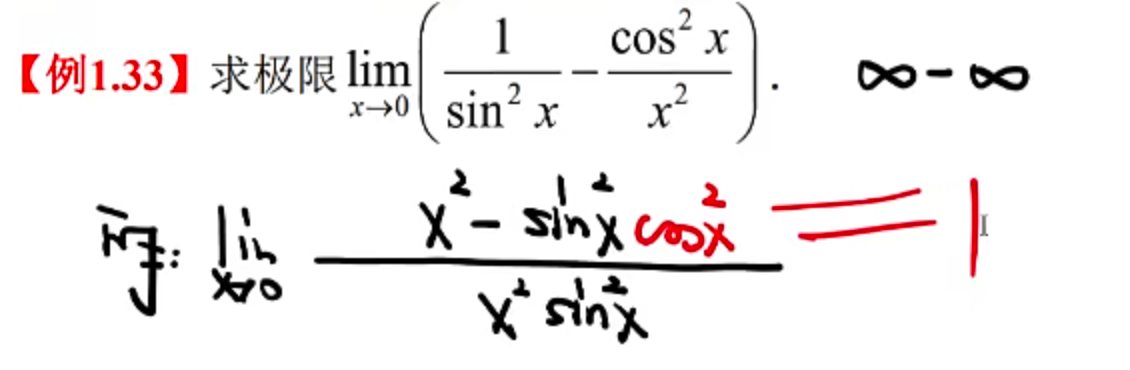 【例1.33】求极限 lim x→0 ( 1/sin² x − cos² x/x² ). ∞ - ∞
原: lim x→0 (x² - sin²x cos²x)/(x² sin²x) = 1